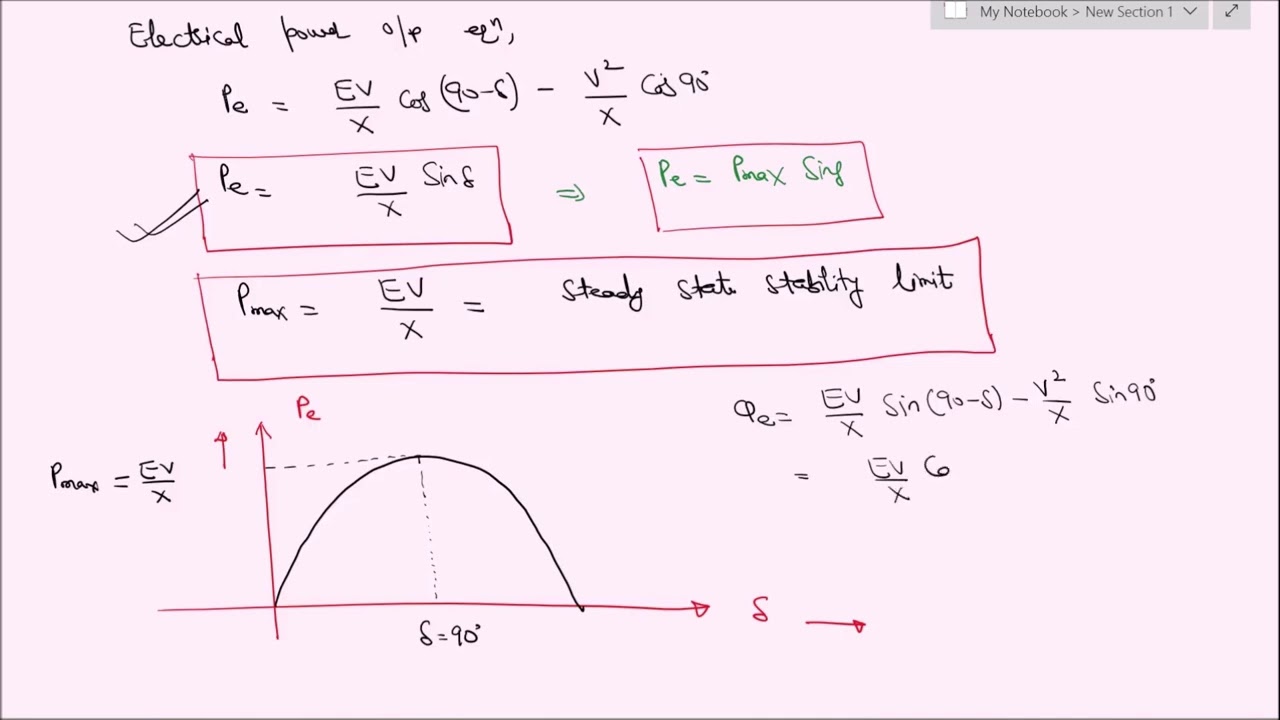 My Notebook > New Section 1
Electrical power o/p eqⁿ,
Pe = EV/X Cos (90-δ) - V²/X Cos 90°
Pe = EV/X Sin δ ⇒ Pe = Pmax Sin δ
Pmax = EV/X = Steady state stability limit
Pe
Pmax = EV/X
δ = 90°
δ
Qe = EV/X Sin (90-δ) - V²/X Sin 90°
= EV/X Co